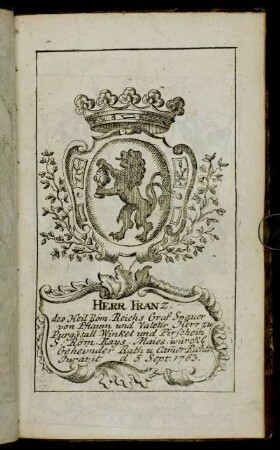 HERR FRANZ.
des Heil Röm. Reichs Graf Spauer
von Pflaum und Valeur Herr zu
Purgstall Winkel und Firschein
Röm. Kays. Maies. würckl.
Geheimder Rath u. Camer Richter
Juravit d 5 Sept. 1763.